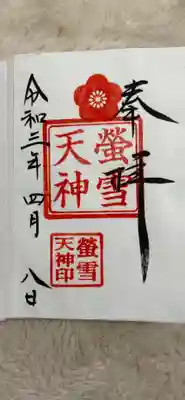 奉拝
螢雪
天神
螢雪
天神印
令和三年 四月 八日